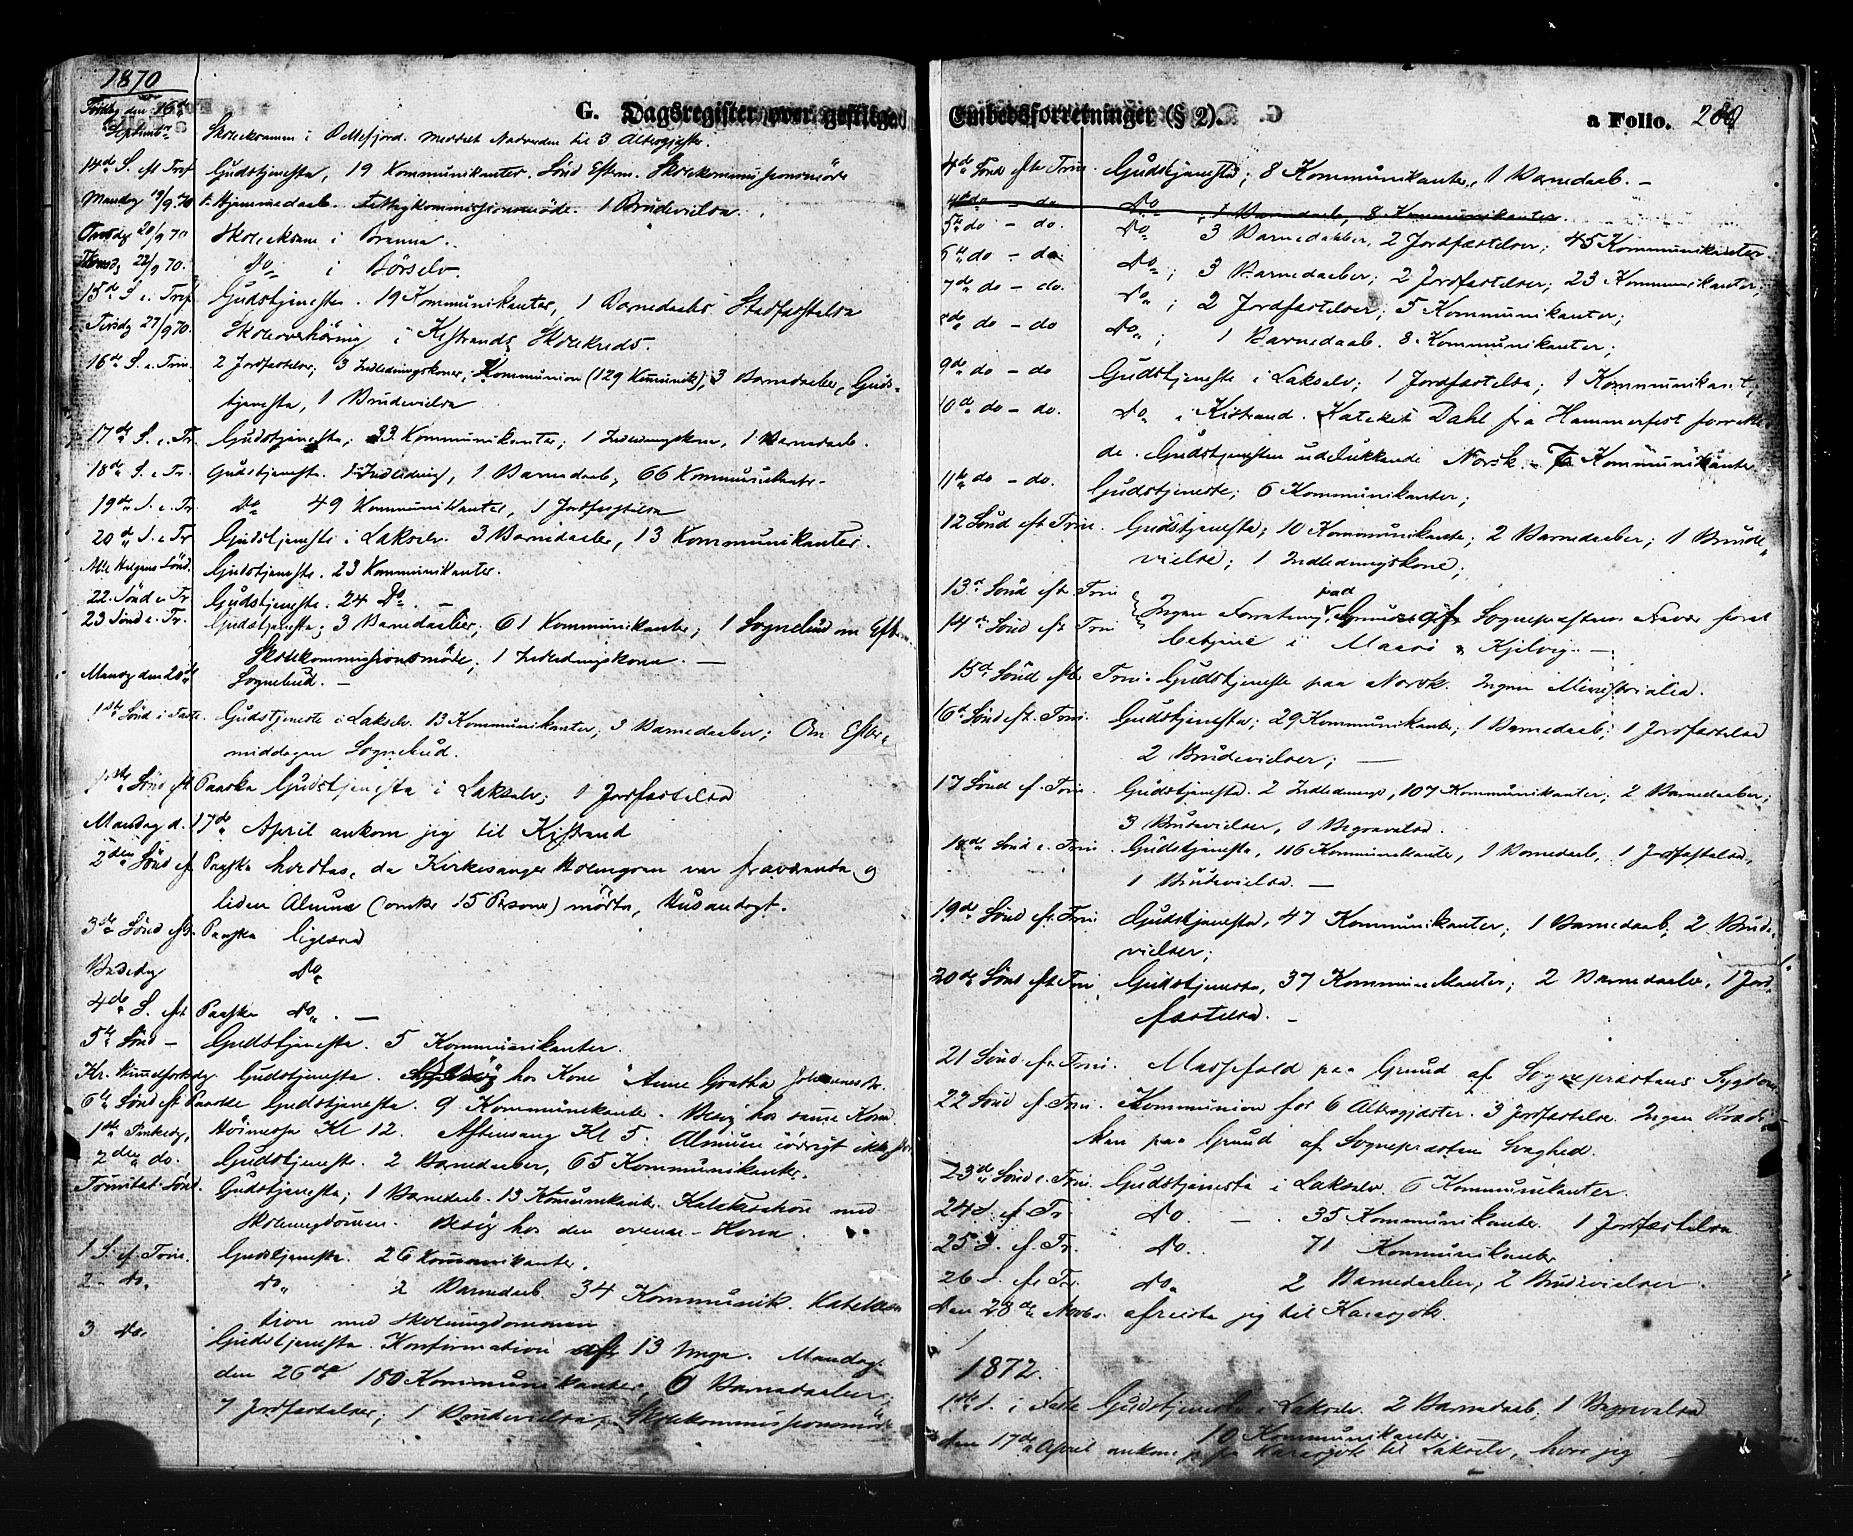 1870
G. Dagsregister over geistlige
Tirsdag den
September Skoleexamen i Meddelt Nadverden til 3 Altergjester.
14de S. eft Tref Gudstjenesta, 19 Kommunikanter. Sönd Efterm. Skolekommissionsmöde
Mandag 19/9 70 Hjemmedaab. Fattigkommissionsmöde. 1 Brudevielse.
Onsdag 20/9 70 Skoleexamen i Brenna.
22/9 70. Do i Börselv.
15de S e. Tref Gudstjenesta. 19 Kommunikanter, 1 Barnedaab
Tirsdg 27/9 70. Skoleoverhöring i Kistrands Skolekreds.
16de S. e. Trin. 2 Jordfæstelser; 3 Indledningskoner, Kommunion (129 Kommunik); 3 Barnedaaber, Guds-
tjenesta, 1 Brudevielse
17de S. e. Tr. Gudstjenesta; 33 Kommunikanter; 1 Indledningskone, 1 Barnedaab.
18de S. e Tr. Gudstjenesta. Indledning, 1 Barnedaab, 66 Kommunikanter.
19de S. e. Tr. Do 49 Kommunikanter, 1 Jordfæstelse
20de S. e Tr Gudstjeneste i Lakselv. 3 Barnedaaber, 13 Kommunikanter.
Alle Helgens Sönd. Gudstjeneste. 23 Kommunikanter.
22. Sönd e. Tr Gudstjeneste. 24 Do. —
23 Sönd e. Tr. Gudstjenesta; 3 Barnedaaber; 61 Kommunikanter; 1 Sognebud om Efterm
Skolekommissionsmöde; 1 Indledningskone. —
Mandg den Sognebud. —
1ste Sönd i Faste. Gudstjeneste i Lakselv. 13 Kommunikanter, 3 Barnedaaber; Om Efter-
middagen Sognebud.
1ste Sönd eft Paaske Gudstjenesta i Lakselv; 1 Jordfæstelse
Mandag d. 17de April ankom jeg til Kistrand
2den Sönd ef Paaske holdtes, da Kirkesanger var fraværende og
liden Almue (omkr 15 Personer) mödte, Husandagt.
3de Sönd eft. Paaske ligesaa
Bededag Do
4de S. eft Paaske Do. —
5te Sönd — Gudstjenesta. 5 Kommunikanter.
Kr. Himmelfartsdg Gudstjenesta. hos Kone Anne Gretha
6te Sönd eft Paaske Gudstjenesta. 9 Kommunikanter. Besög hos samme Kone
1ste Pinkedg, Höimesse Kl 12. Aftensang Kl 5.
2den do. Gudstjeneste. 2 Barnedaaber, 65 Kommunikanter.
Trinitat. Sönd. Gudstjenesta; 1 Barnedaab. 13 Kommunikant. Katekisation med
Skoleungdommen. Besög hos den Kone.
1 S. ef. Trin. Gudstjenesta. 26 Kommunikanter.
2 - Do. Do. 2 Barnedaab. 34 Kommunik. Katekisa
tion med Skoleungdommen.
3 Do. Gudstjenesta. Konfirmation af 13 Unge. Mandag
den 26de 180 Kommunikanter, 6 Barnedaaber,
7 Jordfæstelser; 1 Brudevielse, Skolekommissionsmöde
Embedsforretninger (§ 2). a Folio. 280
4de Sönd efter Trin. Gudstjenesta; 8 Kommunikanter, 1 Barnedaab. —
4de do - do Do 1 Barnedaab, 8 Kommunikanter.
5te do - do. Do 3 Barnedaaber, 2 Jordfæstelser; 45 Kommunikanter.
6te do - do. Do; 3 Barnedaaber; 2 Jordfæstelser; 23 Kommunikanter;
7de do - do. Do; 2 Jordfæstelser; 5 Kommunikanter;
8de do - do Do; 1 Barnedaab. 8 Kommunikanter;
9de do - do Gudstjeneste i Lakselv; 1 Jordfæstelse; 1 Kommunikant;
10de do - do. Do i Kistrand. Kateket Dahl fra Hammerfest forrette
de. Gudstjenesten udelukkende Norsk. 7 Kommunikanter
11te do - do. Gudstjeneste; 6 Kommunikanter;
12 Sönd eft Trin. Gudstjenesta; 10 Kommunikanter; 2 Barnedaaber; 1 Brude-
vielse; 1 Indledningskone;
13de Sönd eft Trin
14de Sönd ef Trin Ingen Forretning paa Grund af Sognepræstens Fravær for at
betjene i Maasö & Kjelvig. —
15de Sönd eft Trin. Gudstjeneste paa Norsk. Ingen Ministerialia.
16de Sönd eft. Trin. Gudstjenesta; 29 Kommunikanter; 1 Barnedaab; 1 Jordfæstelse
2 Brudevielser; —
17 Sönd ef. Trin. Gudstjenesta. 2 Indledninger, 107 Kommunikanter; 2 Barnedaaber;
3 Brudevielser, 1 Begravelse.
18de Sönd e. Trin. Gudstjenesta, 116 Kommunikanter, 1 Barnedaab, 1 Jordfæstelse,
1 Brudevielse. —
19de Sönd eft. Trin Gudstjenesta, 47 Kommunikanter; 1 Barnedaab, 2 Brude-
vielser;
20de Sönd eft Trin Gudstjenesta, 37 Kommunikanter; 2 Barnedaaber, 1 Jord-
fæstelse. —
21 Sönd. ef. Trin. Messefald paa Grund af Sognepræstens Sygdom
22 Sönd ef Trin. Kommunion for 6 Altergjester. 3 Jordfæstelser. Ingen Prædi-
ken paa Grund af Sognepræstens Svaghed.
23de Sönd e. Trin. Gudstjenesta i Lakselv. 6 Kommunikanter.
24 S. ef Tr Do. — 35 Kommunikanter. 1 Jordfæstelse
25 S. ef. Tr. Do. 71 Kommunikanter
26 S. ef. Tr. Do 2 Barnedaaber, 2 Brudevielser.
den 28de Novbr. afreiste jeg til Karasjok.
1872.
1ste S. i Faste Gudstjeneste i Lakselv. 2 Barnedaab; 1 Begravelse
10 Kommunikanter.
den 17de April ankom jeg fra Karasjok til Lakselv, hvor jeg